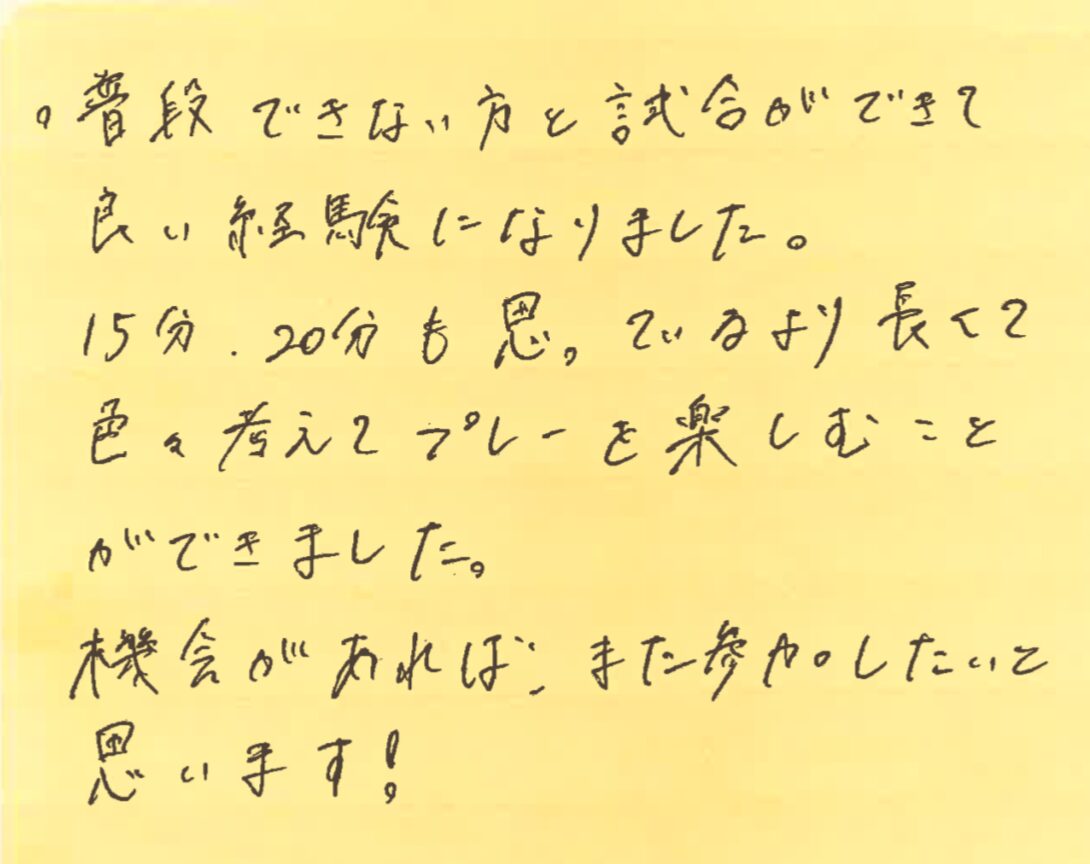 。普段できない方と試合ができて
良い経験になりました。
15分、20分も思っているより長くて
色々考えてプレーを楽しむこと
ができました。
機会があれば、また参加したいと
思います!